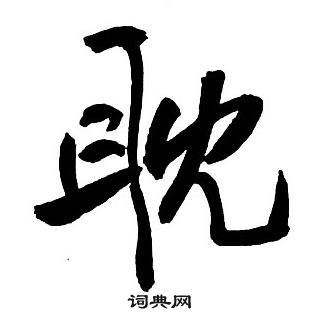 耽
词典网